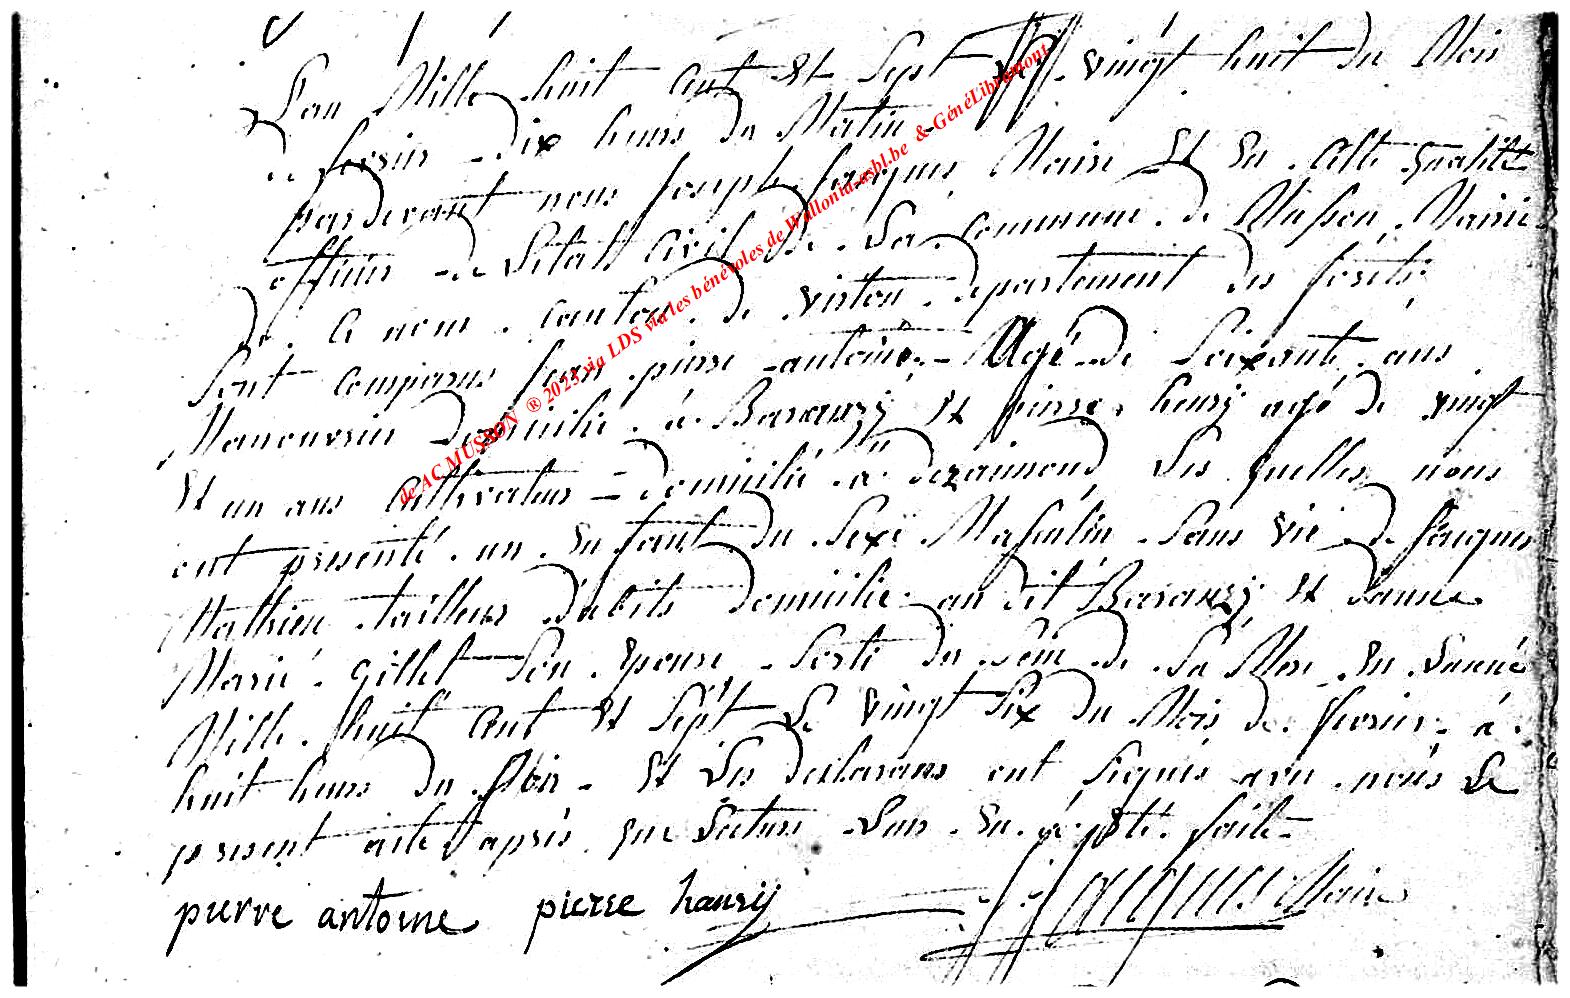 L'an Mille huit Cent Et Sept Le vingt huit du Mois
de fevrier dix heures du Matin
pardevant nous Joseph Jacques Maire Et En Cette qualité
officier de L'Etatt Civil de La Commune de Musson Mairie
de Ce nom Canton de virton departement des forêts
Sont Comparus Jean pierre antoine Agé de Soixante ans
Manouvrier Domicilié à Baranzÿ Et pierre henrÿ agé de vingt
Et un ans Cultivateur domicilié à Les quelles nous
ont presenté un Enfant du Sexe Masculin Sans vie de Jacques
Mathieu tailleur d'abits domicilie au dit Baranzÿ Et d'anne
Marie gillet Son Epouse Sorti du Sein de Sa Mere En L'année
Mille huit Cent Et Sept Le vingt Six du Mois de fevrier à
huit heures du Et Les declarans ont Signés avec nous Le
present acte après que Lecture Leur En a été faite
pierre antoine pierre hanrÿ Jacques Maire
de AC MUSSON ® 2023 via LDS via les bénévoles de Wallonia-asbl.be & GénéLibramont